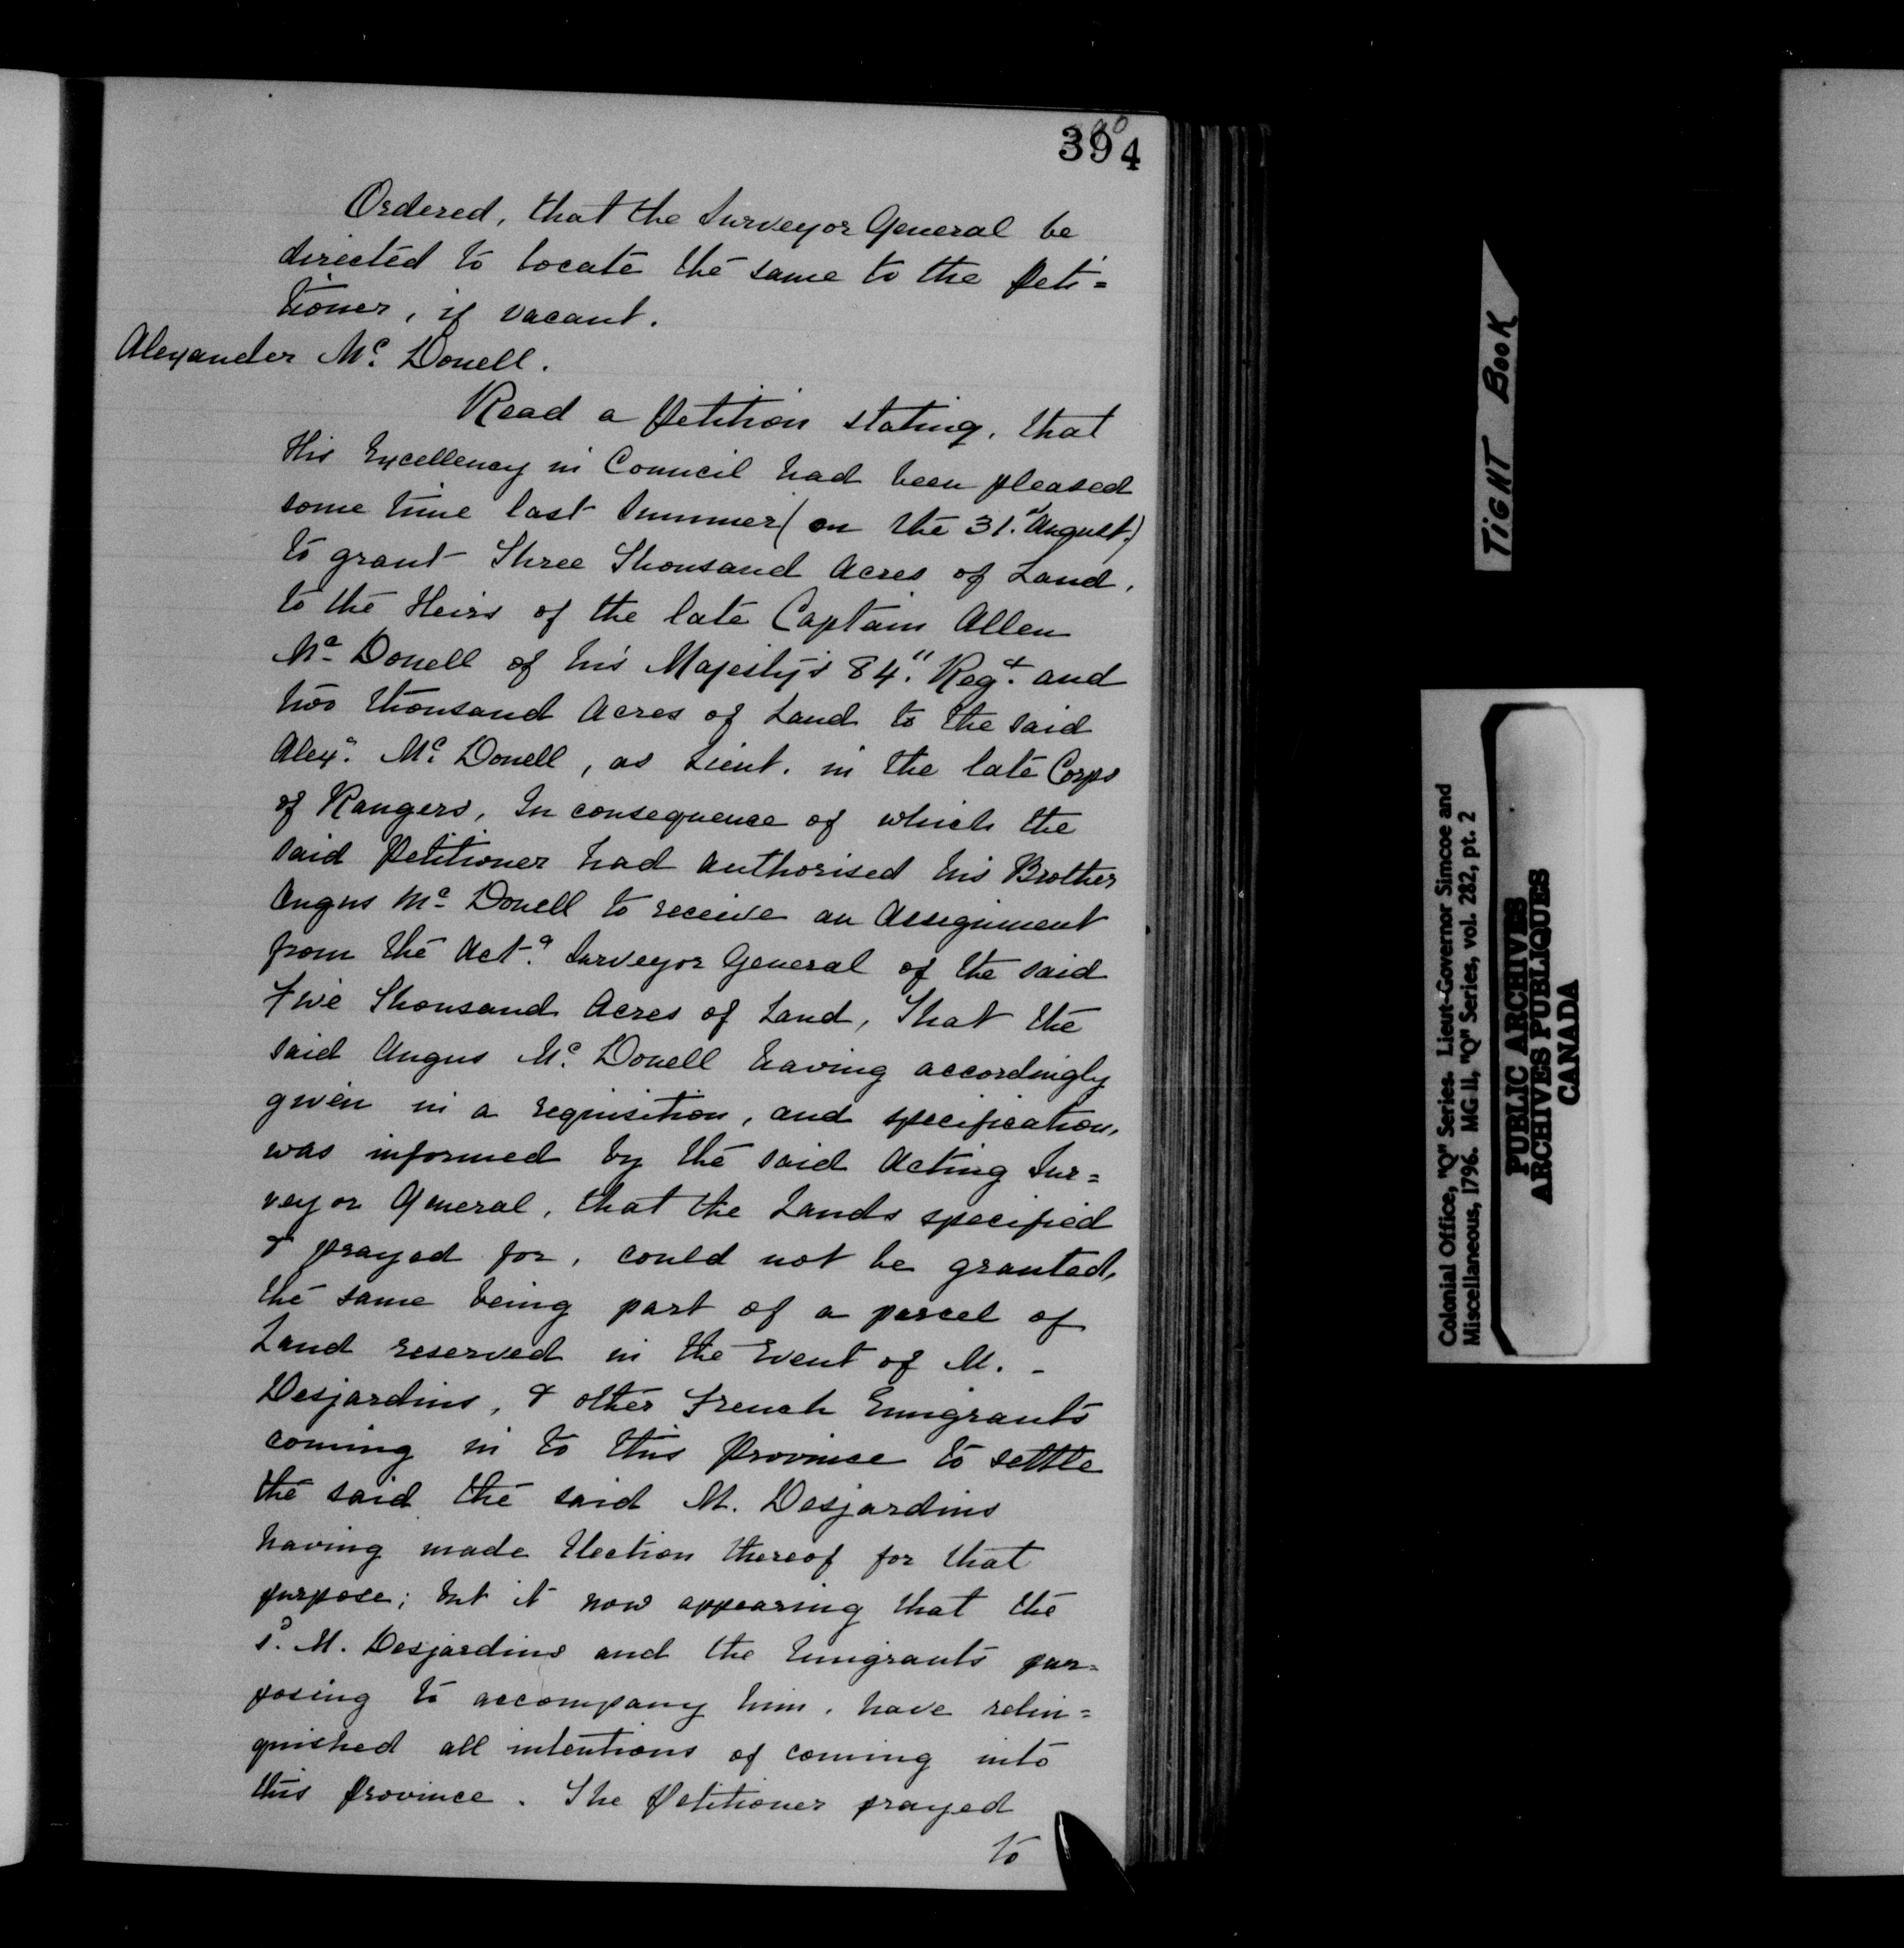 394
Ordered, that the Surveyor General be
directed to locate the same to the Peti=
tioner, if vacant.
Alexander Mc. Donell.
Read a Petition stating, that
His Excellency in Council had been pleased
some time last Summer (on the 31.st August.)
to grant Three Thousand Acres of Land,
to the Heirs of the late Captain Allen
Mc Donell of his Majesty's 84." Regt. and
two thousand Acres of Land to the said
Alexr. Mc. Donell, as Lieut. in the late Corps
of Rangers, In consequence of which the
said Petitioner had authorised his Brother
Angus Mc Donell to receive an Assignment
from the Actg. Surveyor General of the said
Five Thousand Acres of Land, That the
said Angus Mc. Donell having accordingly
given in a requisition, and specification,
was informed by the said Acting Sur=
veyor General, that the Lands specified
& prayed for, could not be granted,
the same being part of a parcel of
Land reserved in the Event of M. -
Desjardins, & other French Emigrants
coming in to this Province to settle
the said the said M. Desjardins
having made Election thereof for that
purpose; but it now appearing that the
sd. M. Desjardins and the Emigrants pur=
posing to accompany him, have relin=
quished all intentions of coming into
this Province. The Petitioner prayed
to
TIGHT BOOK
Colonial Office, "Q" Series. Lieut-Governor Simcoe and
Miscellaneous, 1796. MG 11, "Q" Series, vol. 282, pt. 2
PUBLIC ARCHIVES
ARCHIVES PUBLIQUES
CANADA